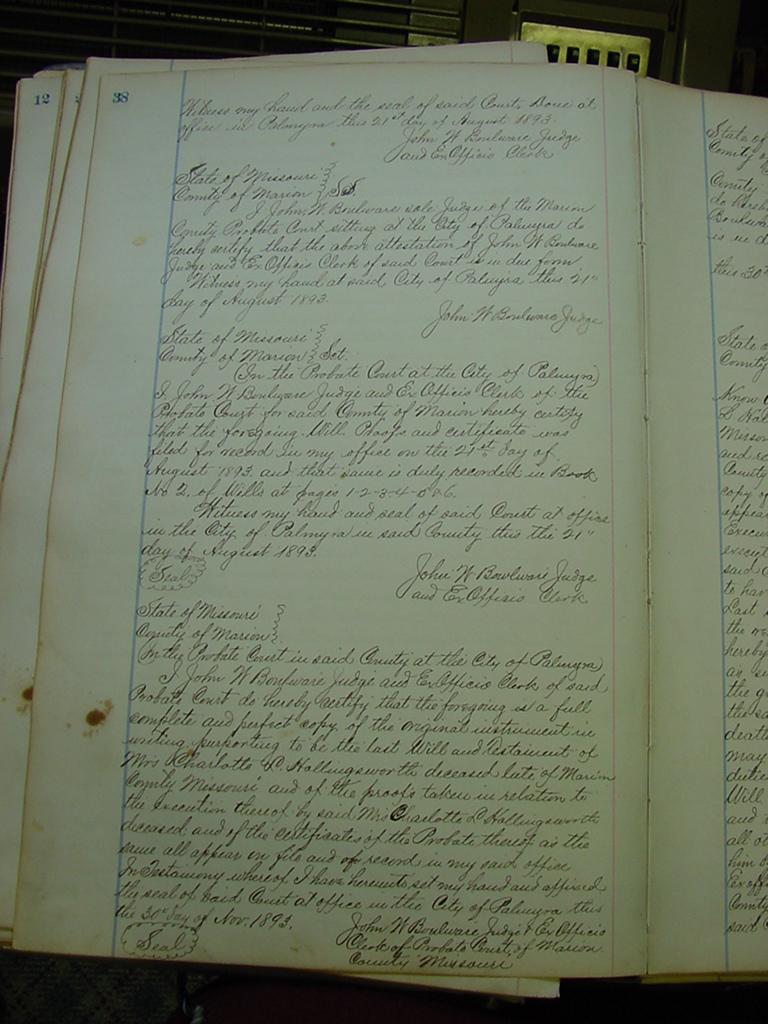 12
38
Witness my hand and the seal of said Court. Done at
office in Palmyra this 21st day of August 1893.
John W Boulware Judge
and Ex Officio Clerk
State of Missouri
County of Marion } Sct.
I John W. Boulware sole Judge of the Marion
County Probate Court sitting at the City of Palmyra do
hereby certify that the above attestation of John W Boulware
Judge and Ex Officio Clerk of said Court is in due form.
Witness my hand at said City of Palmyra this 21st
day of August 1893.
John W Boulware Judge
State of Missouri
County of Marion } Sct.
In the Probate Court at the City of Palmyra)
I, John W. Boulware Judge and Ex Officio Clerk of the
Probate Court for said County of Marion hereby certify
that the foregoing Will. Proofs and certificate was
filed for record in my office on the 21st day of
August 1893. and that same is duly recorded in Book
No 2. of Wills at pages 1-2-3-4-5 & 6.
Witness my hand and seal of said Court at office
in the City of Palmyra in said County this the 21st
day of August 1893.
Seal
John W Boulware Judge
and Ex Officio Clerk
State of Missouri
County of Marion }
In the Probate Court in said County at the City of Palmyra)
I John W Boulware Judge and Ex Officio Clerk of said
Probate Court do hereby certify that the foregoing is a full
complete and perfect copy of the original instrument in
writing purporting to be the last Will and testament of
Mrs Charlotte L. Hollingsworth deceased late of Marion
County Missouri and of the proofs taken in relation to
the execution thereof by said Mrs Charlotte L Hollingsworth
deceased and of the certificates of the Probate thereof as the
same all appear on file and of record in my said office
In Testimony whereof I have hereunto set my hand and affixed
the seal of said Court at office in the City of Palmyra this
the 30th day of Nov. 1893.
Seal
John W Boulware Judge & Ex Officio
Clerk of Probate Court, of Marion
County Missouri
State of
County
County
do hereb
Boulwa
is in d
this 30th
State o
County
Know
L Hol
Misso
and re
County
copy o
appear
Execu
execut
said
to hav
Last
the
hereby
as su
the g
the sa
death
may
Will
and
all o
him
Ex off
County
said